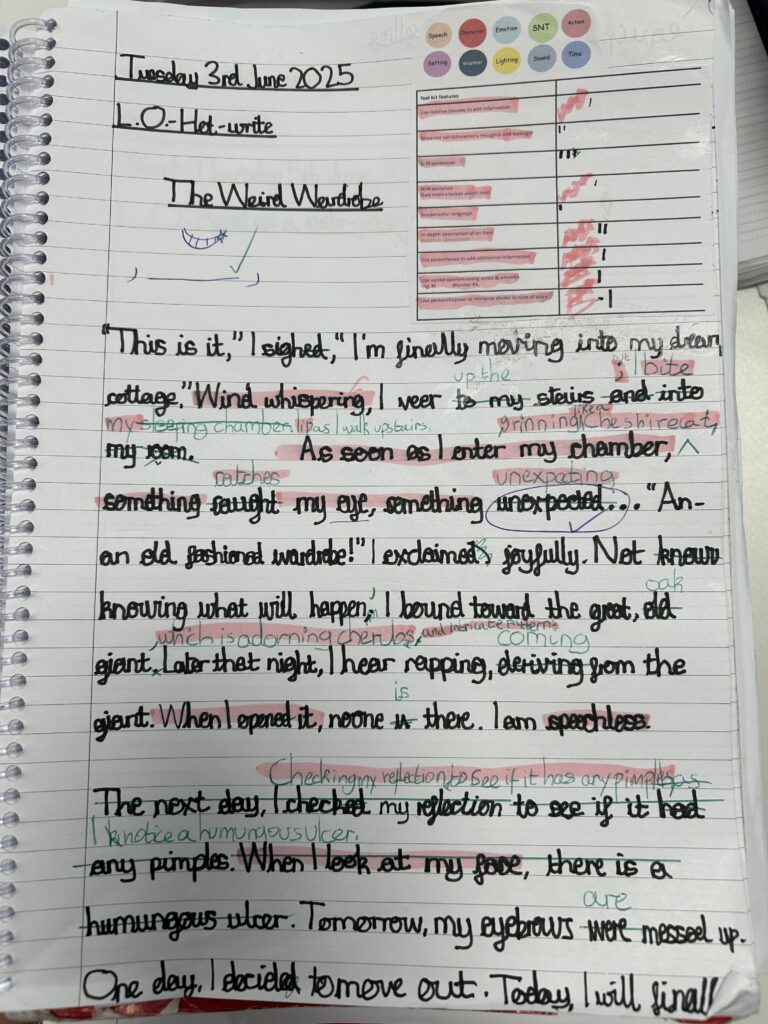 Speech Character Emotion SNT Action
Setting Weather Lighting Sound Time
Tuesday 3rd June 2025
L.O.-Hot-write
The Weird Wardrobe
Tool kit features
Use relative clauses to add information
Show not tell (character's thoughts and feelings)
sentences
Suspenseful language
In-depth description of an item
Use parenthesis to add additional information
Use personification to immerse reader in tone of story
"This is it," I sighed, "I'm finally moving into my dream
up the ; I bite
cottage." Wind whispering, I veer to my stairs and into
my sleeping chamber lip as I walk upstairs. grinning like a Cheshire cat,
my room. As soon as I enter my chamber,
catches unexpating
something caught my eye, something unexpected... "An-
an old fashional wardrobe!" I exclaimed joyfully. Not know
oak
knowing what will happen, I bound toward the great, old
which is adorning cherubs, and intricate patterns coming
giant. Later that night, I hear rapping, deriving from the
is
giant. When I opened it, noone is there. I am speechless.
Checking my reflection to see if it has any pimples as
The next day, I checked my reflection to see if it had
I notice a humungous ulcer.
any pimples. When I look at my face, there is a
are
humungous ulcer. Tomorrow, my eyebrows were messed up.
One day, I decided to move out. Today, I will finall